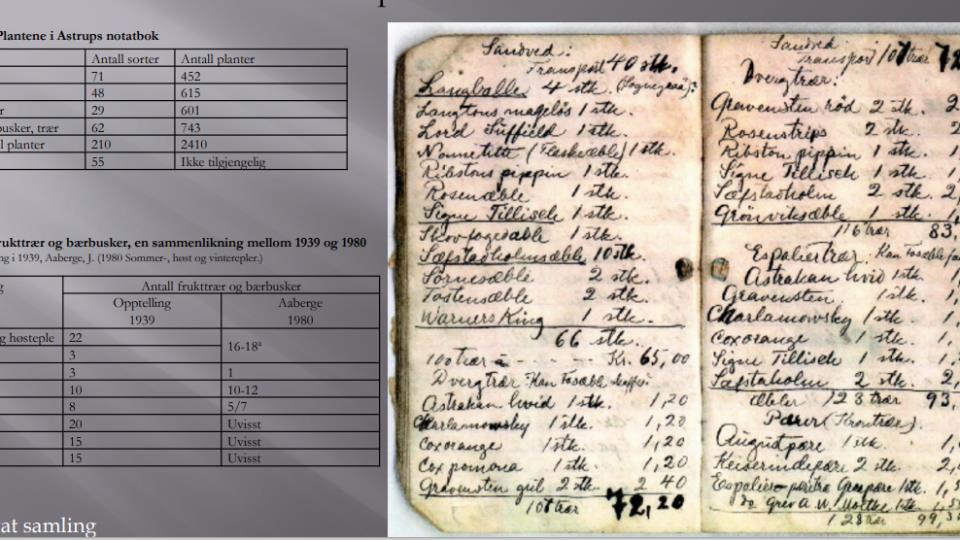 Plantene i Astrups notatbok
Antall sorter Antall planter
71 452
48 615
r 29 601
busker, trær 62 743
l planter 210 2410
55 Ikke tilgjengelig
rukttrær og bærbusker, en sammenlikning mellom 1939 og 1980
ng i 1939, Aaberge, J. (1980 Sommer-, høst og vinterepler.)
g Antall frukttrær og bærbusker
Opptelling Aaberge
1939 1980
g høsteple 22 16-18ª
3
3 1
10 10-12
8 5/7
20 Uvisst
15 Uvisst
15 Uvisst
at samling
Sandved:
Transport 40 stk.
Langballe 4 stk.
Langtons mageløs 1 stk.
Lord Suffield 1 stk.
Nonnetitt (Flaskeæble) 1 stk.
Ribstons pippin 1 stk.
Rosenæble 1 stk.
Signe Tillisch 1 stk.
Skovfogedæble 1 stk.
Sæfstadholmsæble 10 stk.
Sørnesæble 2 stk.
Tostensæble 2 stk.
Warners King 1 stk.
66 stk.
100 trær à - - - - Kr. 65,00
Dvergtrær
Astrakan hvid 1 stk. 1,20
Charlamowsky 1 stk. 1,20
Coxorange 1 stk. 1,20
Cox pomona 1 stk. 1,20
Gravensten gul 2 stk. 2 40
107 trær 72,20
Sandved
Transport 107 trær 72
Dvergtrær:
Gravensten röd 2 stk. 2
Rosenstrips 2 stk. 2
Ribston pippin 1 stk. 1,
Signe Tillisch 1 stk. 1,
Sæfstadholm 2 stk. 2,
Grönviksæble 1 stk. 1,
116 trær 83,
Espaliertrær:
Astrakan hvid 1 stk. 1,
Gravensten 1 stk. 1,
Charlamowsky 1 stk. 1,
Coxorange 1 stk. 1,
Signe Tillisch 1 stk. 1,
Sæfstaholm 2 stk. 2,
Æbler 123 trær 93,
Pærer (Krontrær).
Augustpære 1 stk. 1,
Keiserindepære 2 stk. 2,
Espalier-pæretræ Grepære 1 stk. 1,
do Grev A. W. Moltke 1 stk. 1,
128 trær 99,